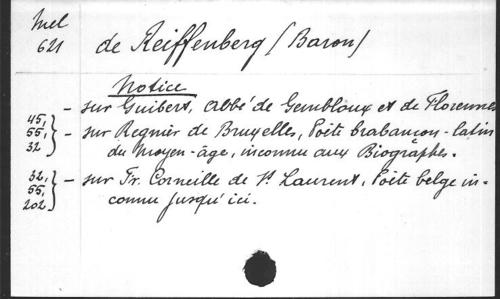 Mel
621
de Reiffenberg (Baron)
Notice
- sur Guibert, Abbé de Gembloux et de Florennes
45,
55,
32
- sur Regnier de Bruxelles, Poëte brabançon-latin
du Moyen-âge, inconnu aux Biographes.
32,
55,
202
- sur Fr. Corneille de St Laurent, Poëte belge in-
connu jusqu'ici.